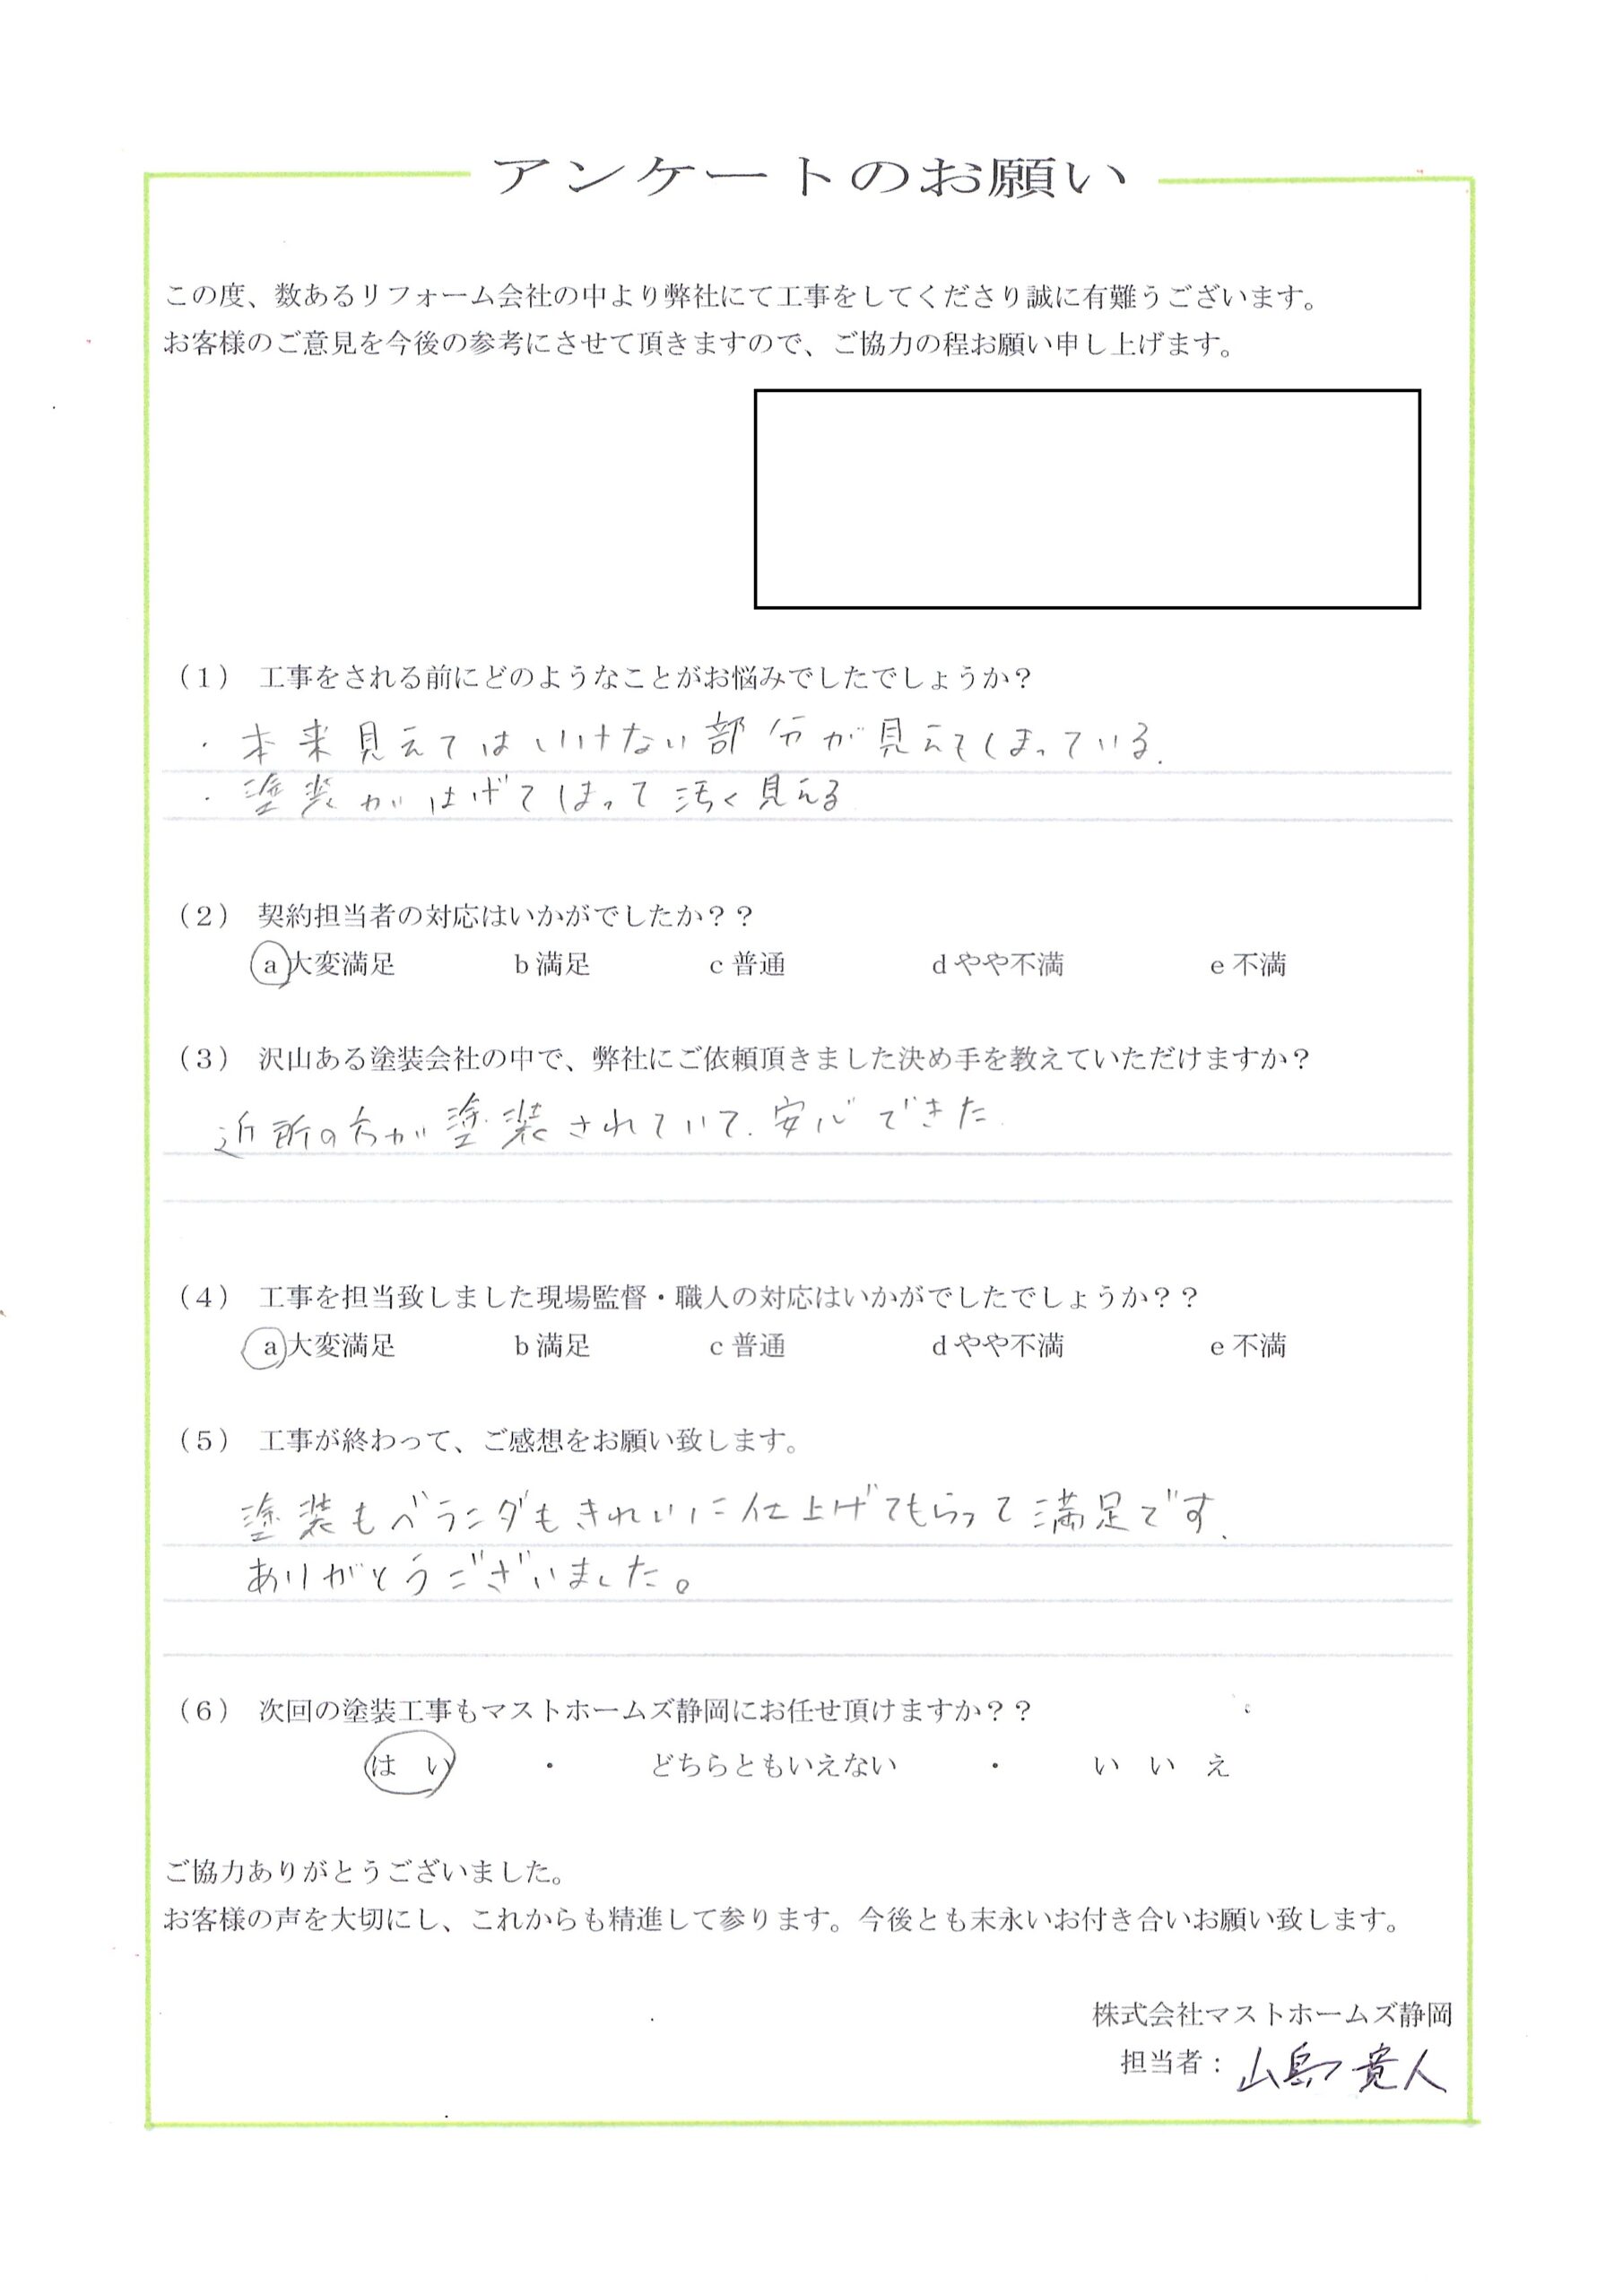 アンケートのお願い
この度、数あるリフォーム会社の中より弊社にて工事をしてくださり誠に有難うございます。
お客様のご意見を今後の参考にさせて頂きますので、ご協力の程お願い申し上げます。
（1） 工事をされる前にどのようなことがお悩みでしたでしょうか？
・本来見えてはいけない部分が見えてしまっている.
・塗装がはげてしまって汚く見える
（2） 契約担当者の対応はいかがでしたか？？
a 大変満足 b 満足 c 普通 d やや不満 e 不満
（3） 沢山ある塗装会社の中で、弊社にご依頼頂きました決め手を教えていただけますか？
近所の方が塗装されていて. 安心できた.
（4） 工事を担当致しました現場監督・職人の対応はいかがでしたでしょうか？？
a 大変満足 b 満足 c 普通 d やや不満 e 不満
（5） 工事が終わって、ご感想をお願い致します。
塗装もベランダもきれいに仕上げてもらって満足です.
ありがとうございました。
（6） 次回の塗装工事もマストホームズ静岡にお任せ頂けますか？？
は い ・ どちらともいえない ・ い い え
ご協力ありがとうございました。
お客様の声を大切にし、これからも精進して参ります。今後とも末永いお付き合いお願い致します。
株式会社マストホームズ静岡
担当者： 山島 寛人